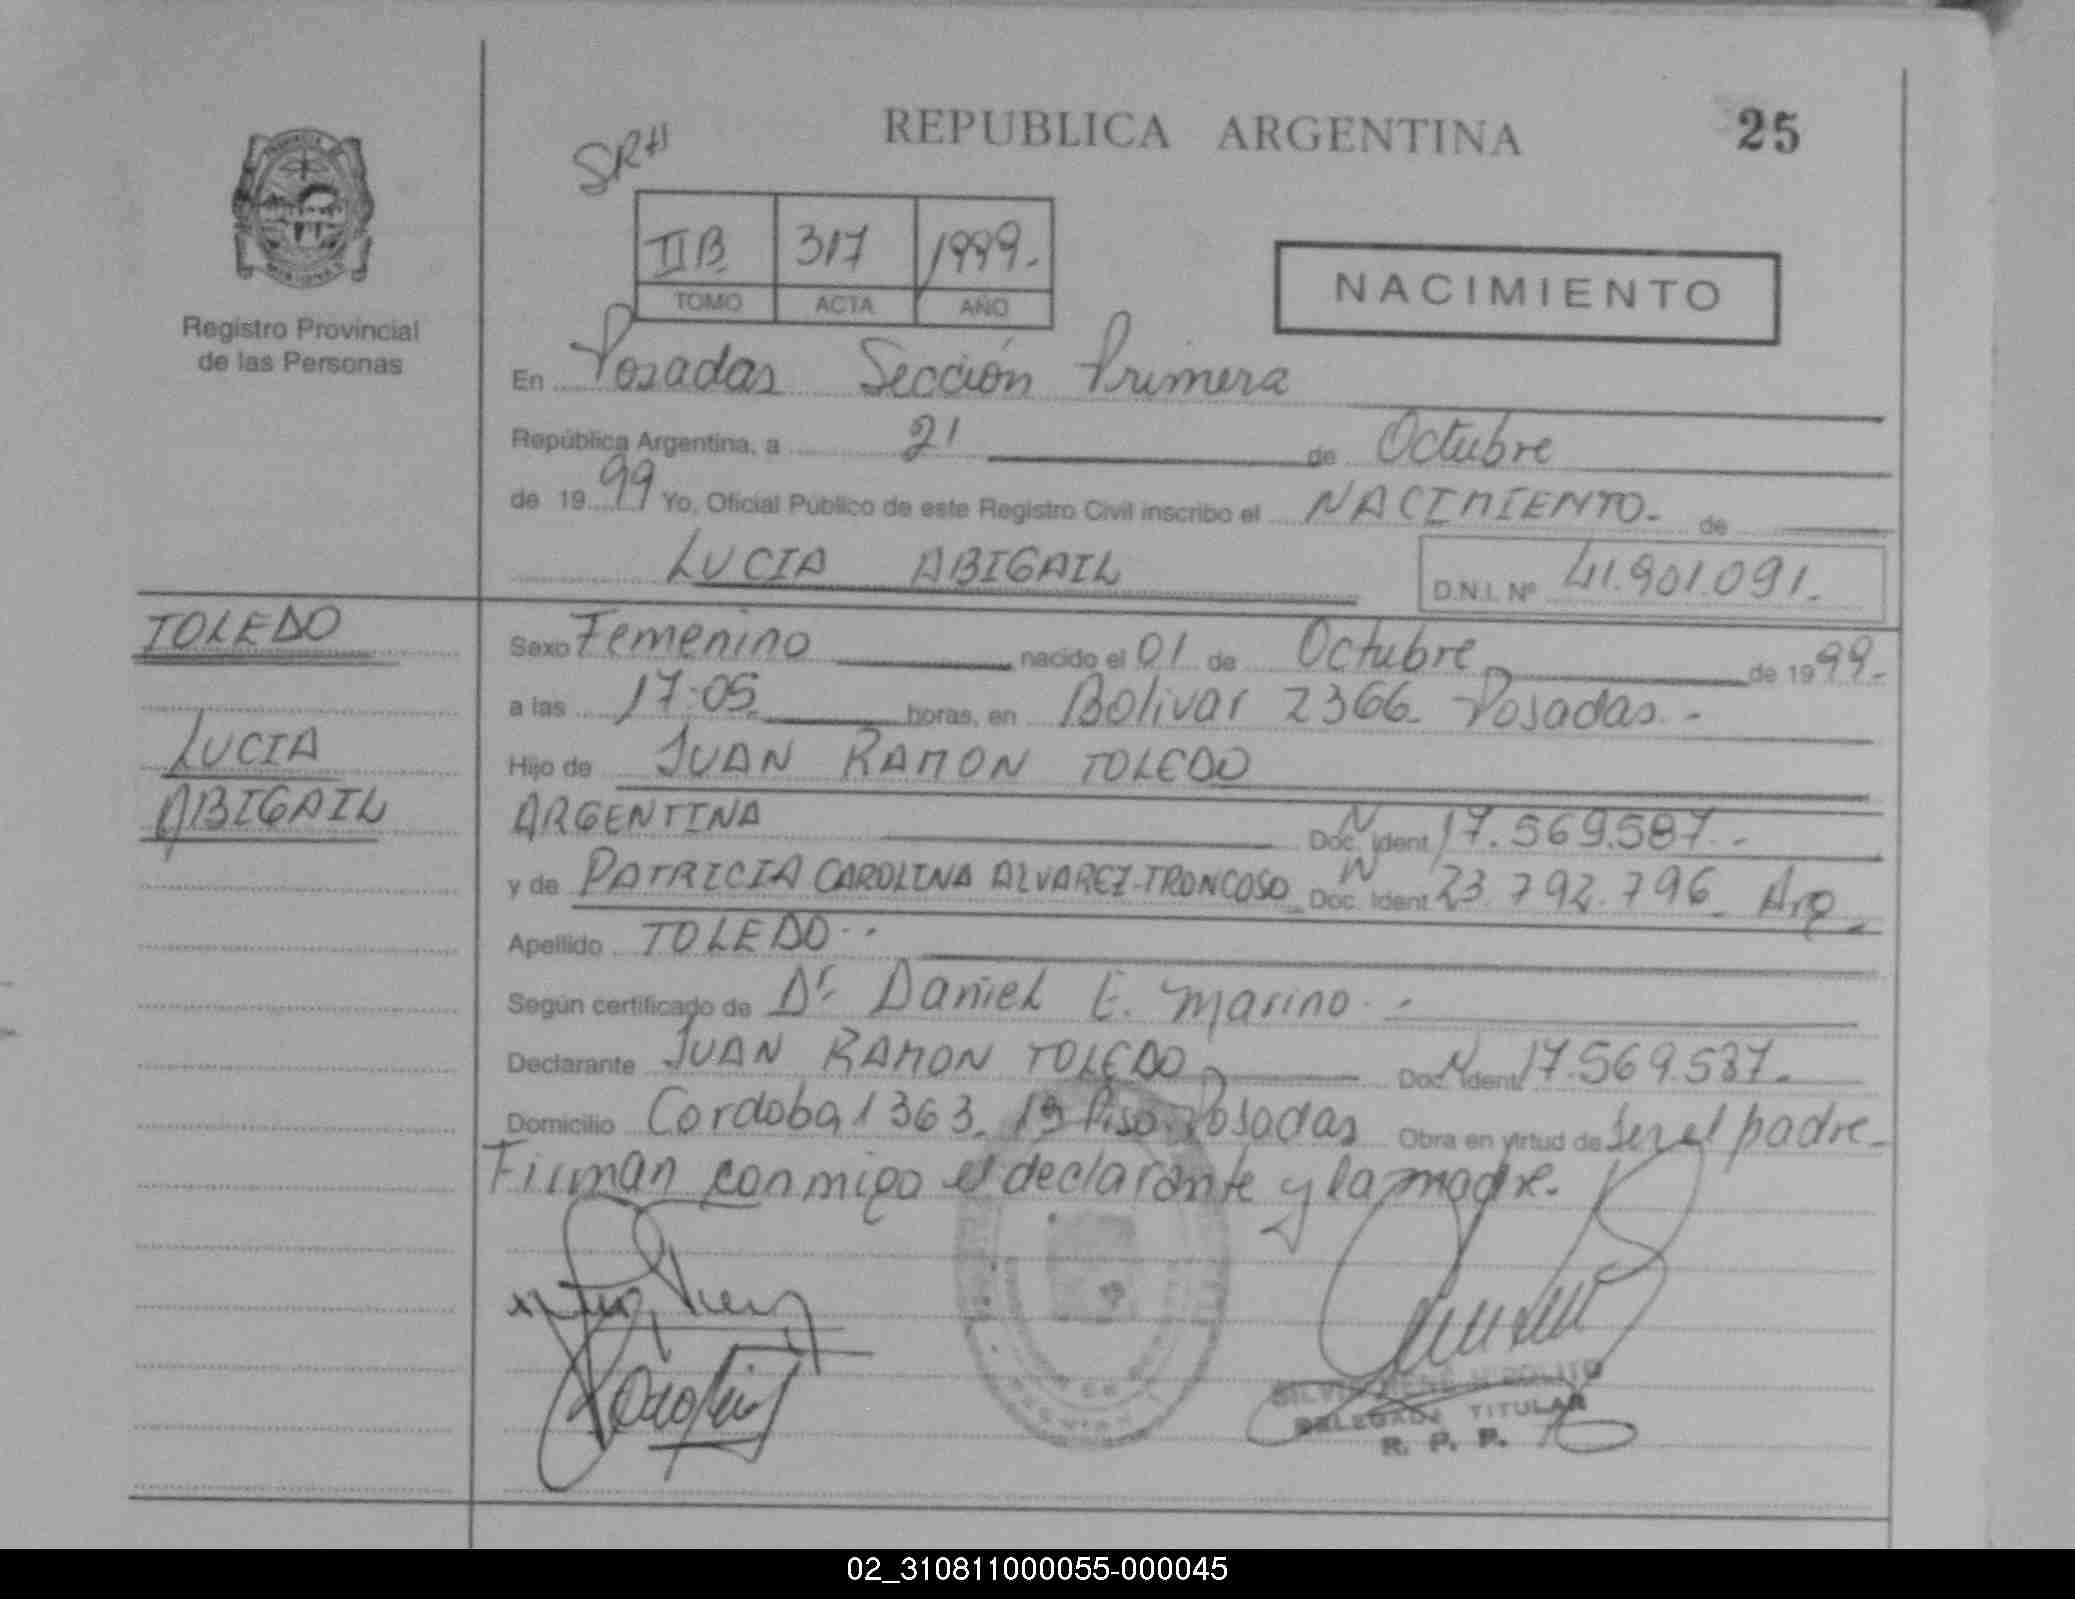 REPUBLICA ARGENTINA 25
SRH
IIB 317 1999.-
TOMO ACTA AÑO
NACIMIENTO
Registro Provincial
de las Personas
En Posadas Sección Primera
República Argentina, a 21 de Octubre
de 19 99 Yo, Oficial Público de este Registro Civil inscribo el NACIMIENTO.- de
LUCIA ABIGAIL D.N.I. Nº 41.901.091.-
TOLEDO
LUCIA
ABIGAIL
Sexo Femenino nacido el 01 de Octubre de 19 99.-
a las 17:05 horas, en Bolivar 2366 Posadas.-
Hijo de JUAN RAMON TOLEDO
ARGENTINA Doc. Ident N 17.569.587.-
y de PATRICIA CAROLINA ALVAREZ-TRONCOSO Doc. Ident N 23.792.796 Arg
Apellido TOLEDO.-
Según certificado de Dr. Daniel E. Marino.-
Declarante JUAN RAMON TOLEDO Doc. Ident N 17.569.587.-
Domicilio Cordoba 1363 Piso Posadas Obra en virtud de Ser el padre.-
Firman conmigo el declarante y la madre.
RENÉ HIPOLITO
DELEGADA TITULAR
R. P. P.
02_310811000055-000045